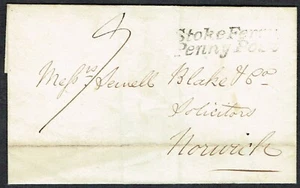 Stoke Ferry
Penny Post
Messrs Sewell Blake & Co
Solicitors
Norwich